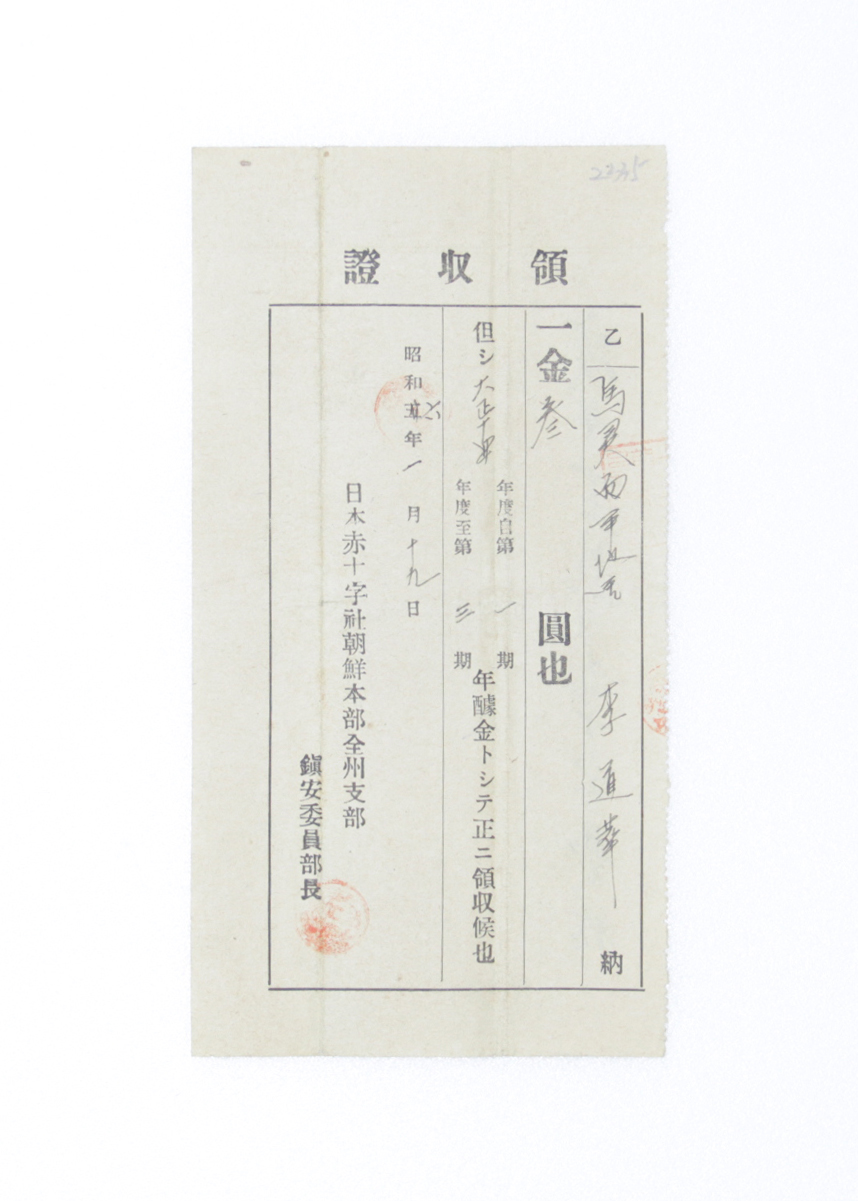 2235
領收證
乙 馬靈面平地里 李道華 納
一金參圓也
但シ大正十四
年度自第一期
年度至第三期
年醵金トシテ正ニ領収候也
昭和五六年一月十九日
日本赤十字社朝鮮本部全州支部
鎭安委員部長